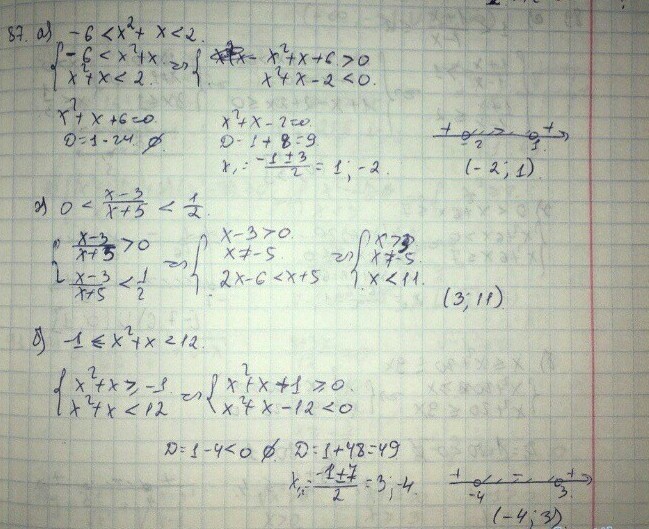 87. а) -6 < x² + x < 2.
{ -6 < x² + x ⇔ { x² + x + 6 > 0
{ x² + x < 2. { x² + x - 2 < 0.
x² + x + 6 = 0. x² + x - 2 = 0.
D = 1 - 24 ∅. D = 1 + 8 = 9
x₁,₂ = (-1 ± 3)/2 = 1; -2.
+ - + -2 1
(-2; 1)
0 < (x-3)/(x+5) < 1/2.
{ (x-3)/(x+5) > 0 ⇔ { x - 3 > 0 ⇔ { x > 3
{ x ≠ -5 { x ≠ -5
{ (x-3)/(x+5) < 1/2 { 2x - 6 < x + 5 { x < 11.
(3; 11)
б) -1 ≤ x² + x < 12.
{ x² + x ≥ -1 ⇔ { x² + x + 1 ≥ 0.
{ x² + x < 12 { x² + x - 12 < 0
D = 1 - 4 < 0 ∅. D = 1 + 48 = 49
x₁,₂ = (-1 ± 7)/2 = 3; -4.
+ - + -4 3
(-4; 3)